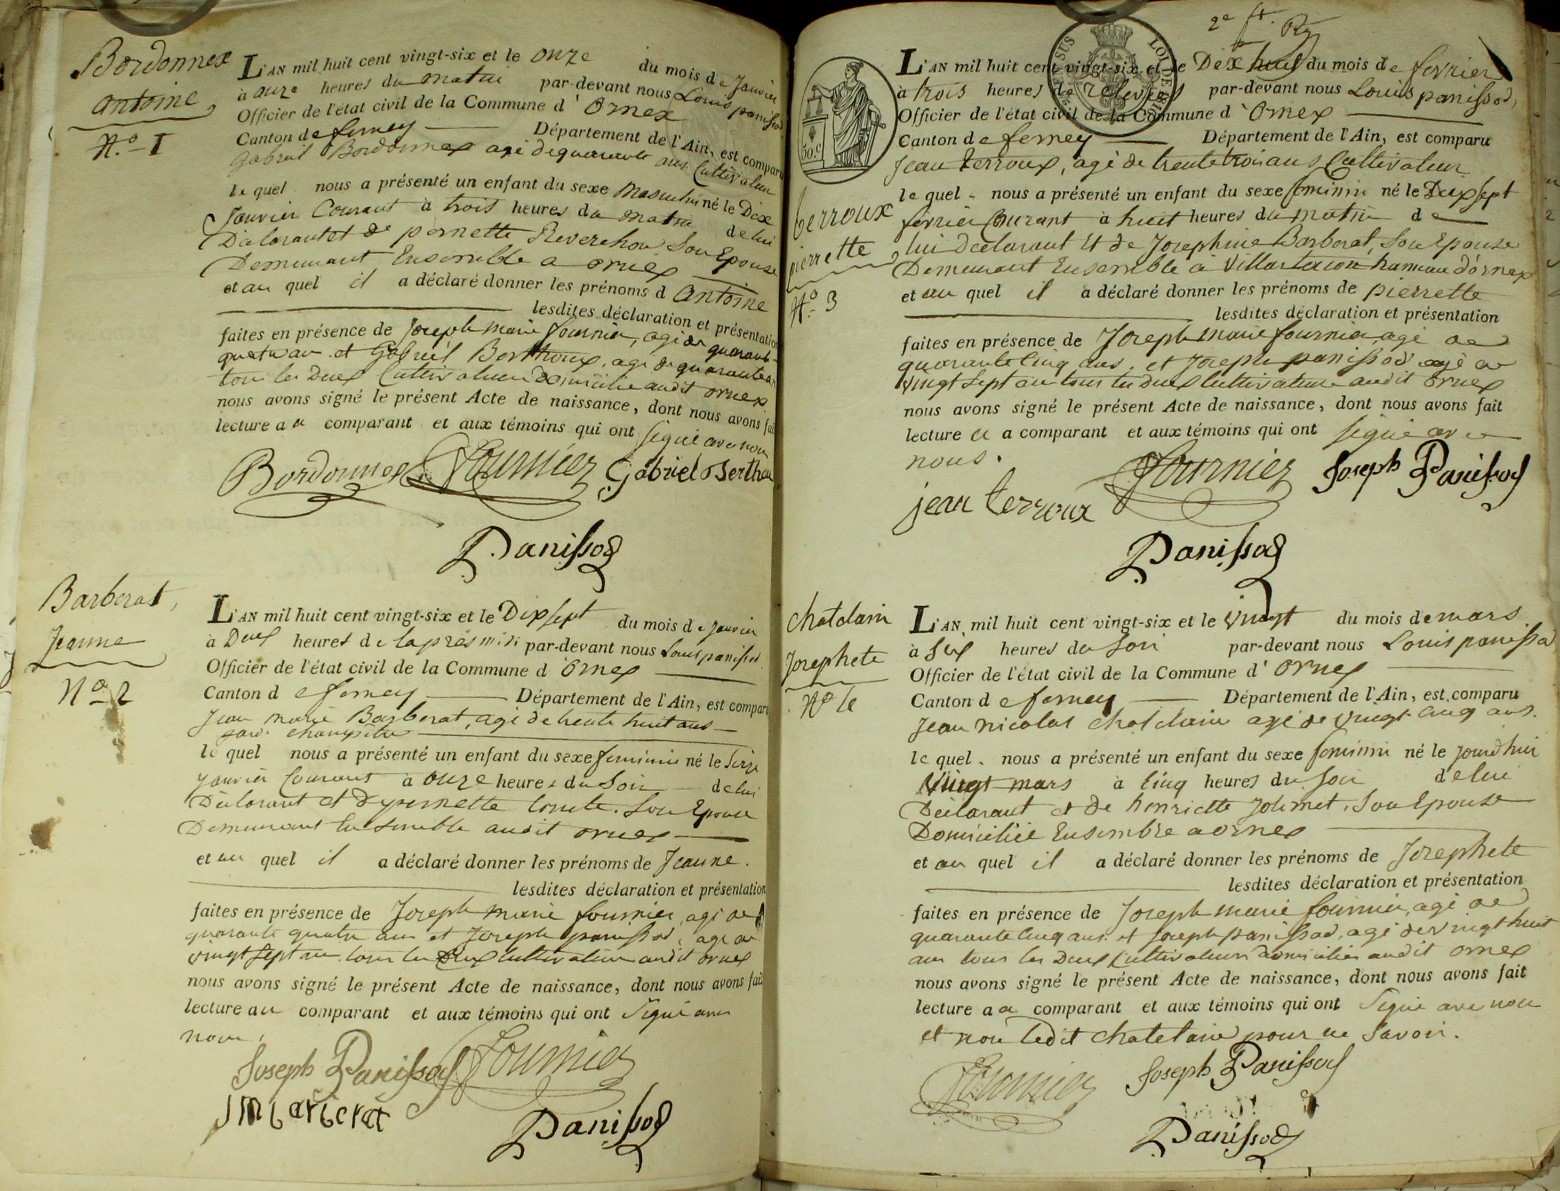 Bordonnex
antoine,
N.o 1
L'AN mil huit cent vingt-six et le onze du mois de janvier
à onze heures du matin par-devant nous Louis panissod
Officier de l'état civil de la Commune d'Ornex
Canton de ferney Département de l'Ain, est comparu
Gabriel Bordonnex agé de quarante ans Cultivateur
le quel nous a présenté un enfant du sexe masculin né le Dix
Janvier Courant à trois heures du matin de lui
Déclarant et de pernette Reverchon Son Epouse
Demeurant Ensemble a ornex
et au quel il a déclaré donner les prénoms d antoine
lesdites déclaration et présentation
faites en présence de Joseph marie fournier, agé de quarante
quatre an et Gabriel Berthoux, agé de quarante
tous les Deux Cultivateur domicilié audit ornex
nous avons signé le présent Acte de naissance, dont nous avons fait
lecture au comparant et aux témoins qui ont signé avec nous
Bordonnex Fournier Gabriel Berthou
Panissod
Barberat,
Jeanne
No 2
L'AN mil huit cent vingt-six et le Dix sept du mois de janvier
à Deux heures de laprès midi par-devant nous Louis panissod
Officier de l'état civil de la Commune d'Ornex
Canton de ferney Département de l'Ain, est comparu
Jean marie Barberat, agé de trente huit ans
gard champetre
le quel nous a présenté un enfant du sexe feminin né le Seize
janvier Courant à onze heures du Soir de lui
Déclarant et dpernette Comte Son Epouse
Demeurant Ensemble audit ornex
et au quel il a déclaré donner les prénoms de Jeanne.
lesdites déclaration et présentation
faites en présence de Joseph marie fournier, agé de
quarante quatre ans et Joseph panissod, agé de
vingt sept ans tous les Deux Cultivateur audit ornex
nous avons signé le présent Acte de naissance, dont nous avons fait
lecture au comparant et aux témoins qui ont Signé avec
nous.
Joseph Panissod Fournier
JM Barberat
Panissod
50.c
L'AN mil huit cent vingt-six et le Dix huit du mois de fevrier
à trois heures de relevées par-devant nous Louis panissod,
Officier de l'état civil de la Commune d'Ornex
Canton de ferney Département de l'Ain, est comparu
Jean terroux, agé de trente trois ans Cultivateur
terroux
pierrette,
No 3
le quel nous a présenté un enfant du sexe feminin né le Dix sept
fevrier Courant à huit heures du matin de
lui Déclarant Et de Josephine Barberat, Son Epouse
Demeurant Ensemble à Villartacon hameau d'ornex
et au quel il a déclaré donner les prénoms de pierrette
lesdites déclaration et présentation
faites en présence de Joseph marie fournier agé de
quarante Cinq ans, et Joseph panissod agé de
vingt sept an tous les deux Cultivateur audit ornex
nous avons signé le présent Acte de naissance, dont nous avons fait
lecture au comparant et aux témoins qui ont signé avec
nous.
Fournier Joseph Panissod
jean terroux
Panissod
Chatelain
Josephete
No 4
L'AN mil huit cent vingt-six et le vingt du mois de mars
à Six heures du soir par-devant nous Louis panissod
Officier de l'état civil de la Commune d'Ornex
Canton de ferney Département de l'Ain, est comparu
Jean nicolas Chatelain agé de vingt Cinq ans.
le quel nous a présenté un enfant du sexe feminin né le jourd'hui
Vingt mars à Cinq heures du Soir de lui
Déclarant et de henriette Jolimet, Son Epouse
Domiciliée Ensemble a ornex
et au quel il a déclaré donner les prénoms de Josephete
lesdites déclaration et présentation
faites en présence de Joseph marie fournier, agé de
quarante Cinq ans et Joseph panissod, agé de vingt huit
ans tous les Deux Cultivateurs domiciliés audit ornex
nous avons signé le présent Acte de naissance, dont nous avons fait
lecture au comparant et aux témoins qui ont Signé avec nous
et non ledit Chatelain pour ne Savoir.
Fournier Joseph Panissod
Panissod